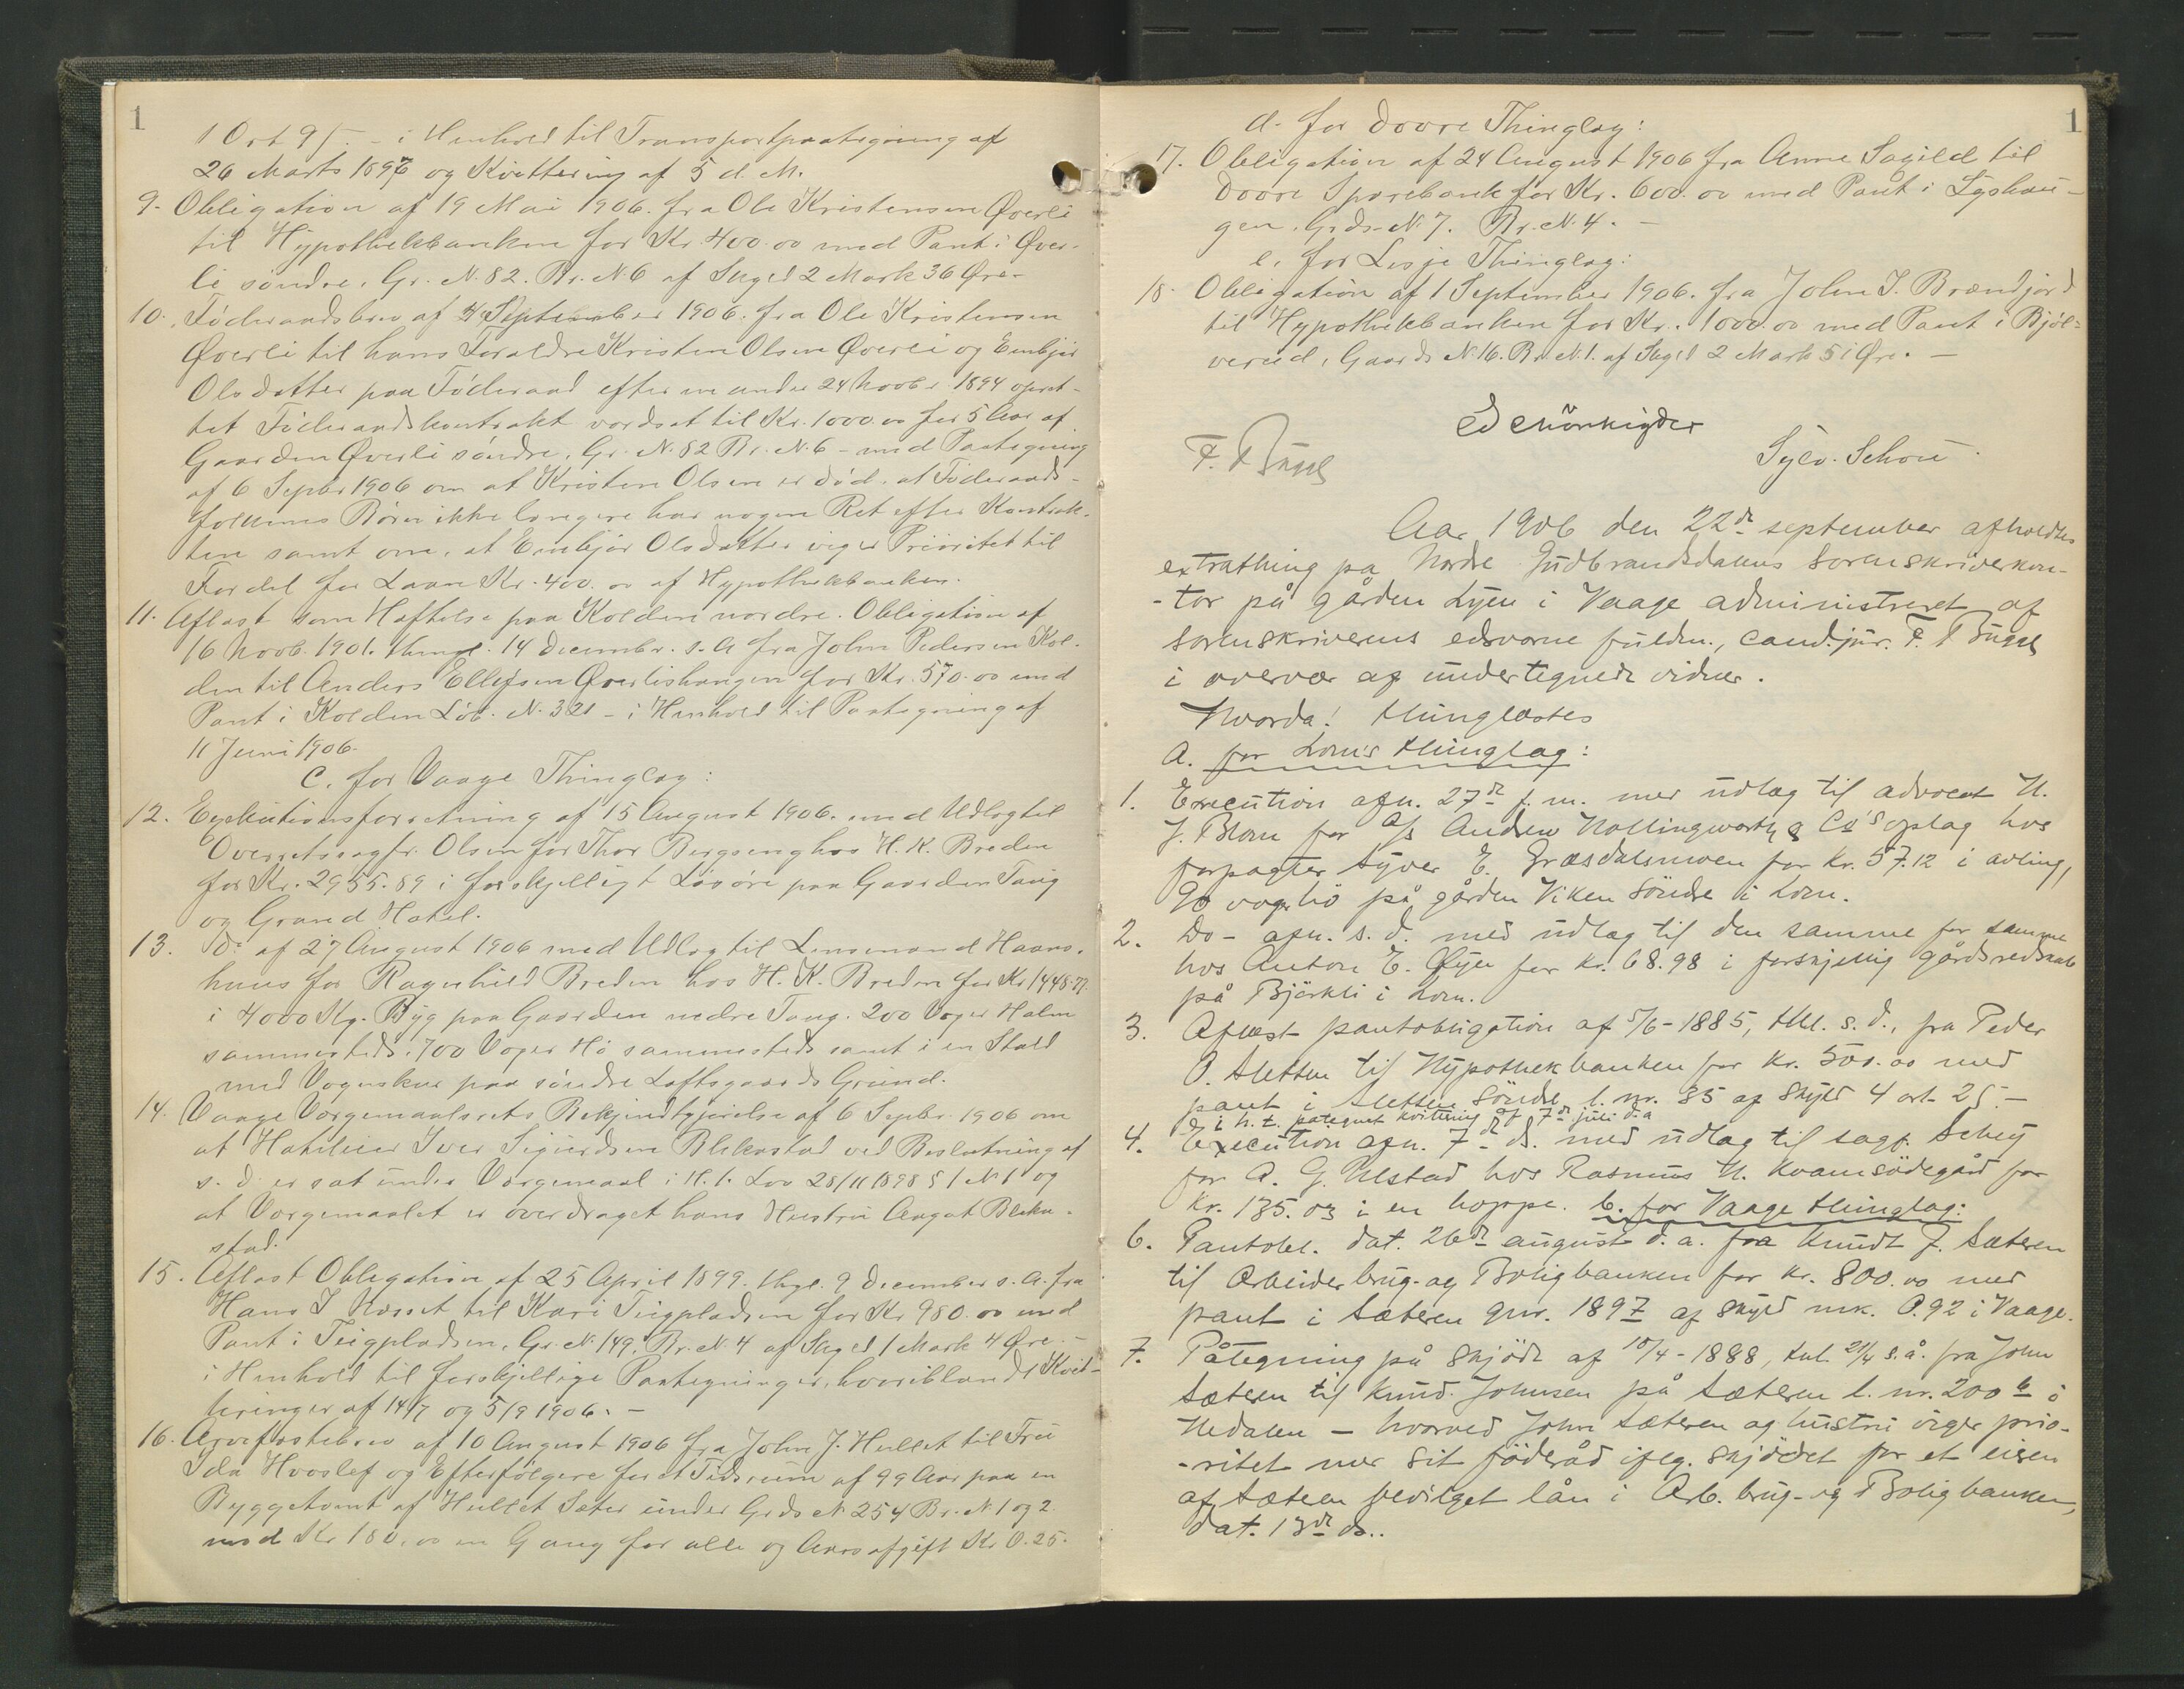 1
1 Ort 9 ſ. - i Henhold til Transportpaategning af
26 Marts 1896 og Kvittering af 5 d. M.
9. Obligation af 19 Mai 1906. fra Ole Kristensen Øverli
til Hypothekbanken for Kr. 400.00 med Pant i Øver-
li søndre, Gr. N. 82. Br. N. 6 af Skyld 2 Mark 36 Øre -
10. Føderaadsbrev af September 1906. fra Ole Kristensen
Øverli til hans Forældre Kristen Olsen Øverli og Embjør
Olsdatter paa Føderaad efter en under 24 Novbr. 1894 opret-
tet Føderaadskontrakt værdsat til Kr. 1000.00 for 5 Aar af
Gaarden Øverli søndre, Gr. N. 82 Br. N. 6 - med Paategning
af 6 Septbr 1906 om at Kristen Olsen er død, at Føderaads-
folkenes Børn ikke længere har nogen Ret efter Kontrak-
ten samt om, at Embjør Olsdatter viger Prioritet til
Fordel for Laan Kr. 400.00 af Hypothekbanken.
11. Aflæst som Hæftelse paa Kolden nordre. Obligation af
16 Novb. 1901. thingl. 14 Decembr. s. A fra John Pedersen Kol-
den til Anders Ellefsen Øverlishaugen for Kr. 570.00 med
Pant i Kolden Løb. N. 321 - i Henhold til Paategning af
11 Juni 1906.
c. for Vaage Thinglag:
12. Exekutionsforretning af 15 August 1906. med Udlæg til
Overretssagfr. Olsen for Thor Bergseng hos H. K. Breden
for Kr. 2955.89 i forskjelligt Løsøre paa Gaarden Taug
og Grand Hotel.
13. Do af 27 August 1906 med Udlæg til Lensmand Haans-
huus for Ragnhild Breden hos H. K. Breden for Kr 1448.77
i 4000 Kg. Byg paa Gaarden nedre Taug. 200 Voger Halm
sammesteds. 700 Voger Hø sammesteds samt i en Stald
med Vognskur paa søndre Loftsgaards Grund.
14. Vaage Værgemaalsrets Bekjendtgjørelse af 6 Septbr. 1906 om
at Hotelier Iver Sigurdsen Blekastad ved Beslutning af
s. d. er sat under Værgemaal i H. t. Lov 28/11 1898 § 1 N. 1 og
at Værgemaalet er overdraget hans Hustru Angot Bleka-
stad.
15. Aflæst Obligation af 25 April 1899. thgl. 9 December s. A. fra
Hans I Nusset til Kari Teigpladsen for Kr 980.00 med
Pant i Teigpladsen, Gr. N. 149, Br. N. 4 af Skyld 1 Mark 4 Øre. -
i Henhold til forskjellige Paategninger, hvoriblandt Kvit-
teringer af 14/7 og 5/9 1906. -
16. Arvefæstebrev af 10 August 1906 fra John J. Hullet til Fru
Ida Hvoslef og Efterfølgere for et Tidsrum af 99 Aar paa en
Byggetomt af Hullet Sæter under Grds N 254 Br. N 1 og 2
mod Kr 180.00 en Gang for alle og Aarsafgift Kr 0.25.
1
d. for Dovre Thinglag:
17. Obligation af 24 August 1906 fra Anne Sagild til
Dovre Sparebank for Kr. 600.00 med Pant i Lyshau-
gen, Grds. N. 7. Br. N. 4. -
e. for Lesje Thinglag:
18. Obligation af 1 September 1906. fra John J. Brændjord
til Hypothekbanken for Kr. 1000.00 med Pant i Bjøl-
verud, Gaards N. 16. Br. N. 1. af Skyld 2 Mark 51 Øre. -
Sylv. Schou
Aar 1906 den 22de september afholdtes
extrathing på Nordre Gudbrandsdalens sorenskriverkon-
-tor på gården Lyen i Vaage administreret af
sorenskriverens edsvorne fuldm., cand. jur. F.
i overvær af undertegnede vidner.
Hvorda! thinglæstes
a. for Lom's thinglag:
1. Execution afh. 27de f. m. med udlæg til advocat H.
J. Blom for A/s Andrew Hollingworth & Co's oplag hos
forpagter Syver E. Græsdalsmoen for kr. 57.12 i avling,
90 voger hö på gården Viken Söndre i Lom.
2. Do - afh. s. d. med udlæg til den samme for samme
hos Anton E. Øyen for kr. 68.98 i forskjellig gårdsredskab
på Björkli i Lom.
3. Aflæst pantobligation af 5/6-1885, thl. s. d., fra Peder
O. Sletten til Hypothekbanken for kr. 500.00 med
pant i Sletten Söndre l. nr. 35 af skyld 4 ort 2 ſ. -
i h. t. påtegnet kvittering af 7de juli d. a
4. Execution afh. 7de ds. med udlæg til sagf. Schey
for A. G. Ulstad hos Rasmus H. Kvamsödegård for
kr. 135.03 i en hoppe. b. for Vaage thinglag:
6. Pantobl. dat. 26de august d. a. fra Knudt J. Sæteren
til Arbeiderbrug- og Boligbanken for kr. 800.00 med
pant i Sæteren gnr. 1897 af skyld mk. 0.92 i Vaage.
7. Påtegning på skjöde af 10/4-1888, tnl. 21/4 s. å. fra John
Sæteren til Knud Johnsen på Sæteren l. nr. 200 b i
Nedalen - hvorved John Sæteren og hustru viger prio-
-ritet med sit föderåd ifelg. skjödet for et eieren
af Sæteren bevilget lån i Arb. brug- og Boligbanken,
dat. 13de ds..